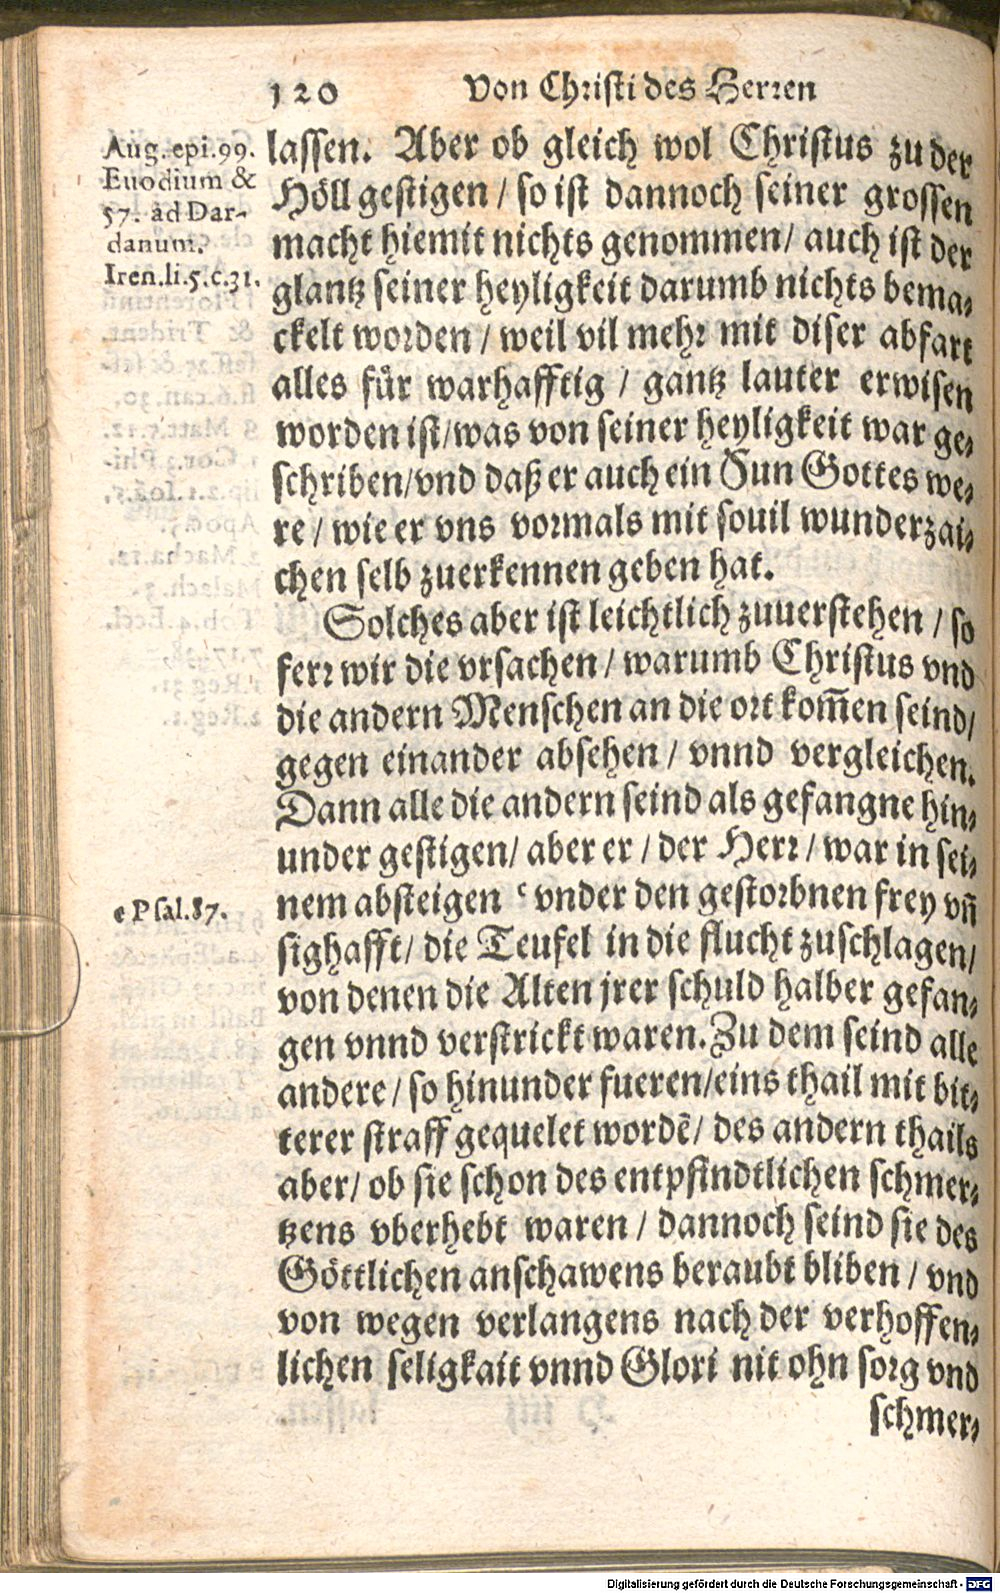 120 Von Christi des Herren
Aug. epi. 99.
Euodium &
57. ad Dar-
danum.
Iren. li. 5. c. 31.
lassen. Aber ob gleich wol Christus zu der
Höll gestigen / so ist dannoch seiner grossen
macht hiemit nichts genommen / auch ist der
glantz seiner heyligkeit darumb nichts bema-
ckelt worden / weil vil mehr mit diser abfart
alles für warhafftig / gantz lauter erwisen
worden ist / was von seiner heyligkeit war ge-
schriben / vnd daß er auch ein Sun Gottes we-
re / wie er vns vormals mit souil wunderzai-
chen selb zuerkennen geben hat.
Solches aber ist leichtlich zuuerstehen / so
ferr wir die vrsachen / warumb Christus vnd
die andern Menschen an die ort kom̃en seind /
gegen einander absehen / vnnd vergleichen.
Dann alle die andern seind als gefangne hin-
under gestigen / aber er / der Herr / war in sei-
e Psal. 87.
nem absteigen ᵉ vnder den gestorbnen frey vñ
sighafft / die Teufel in die flucht zuschlagen /
von denen die Alten jrer schuld halber gefan-
gen vnnd verstrickt waren. Zu dem seind alle
andere / so hinunder fueren / eins thail mit bit-
terer straff gequelet wordẽ / des andern thails
aber / ob sie schon des entpfindtlichen schmer-
tzens vberhebt waren / dannoch seind sie des
Göttlichen anschawens beraubt bliben / vnd
von wegen verlangens nach der verhoffen-
lichen seligkait vnnd Glori nit ohn sorg vnd
schmer-
Digitalisierung gefördert durch die Deutsche Forschungsgemeinschaft - DFG